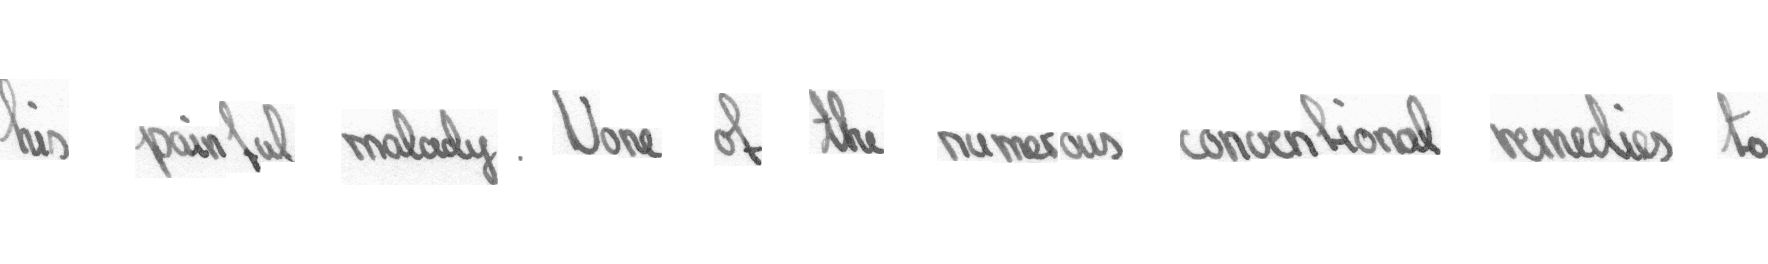 his painful malady . None of the numerous conventional remedies to